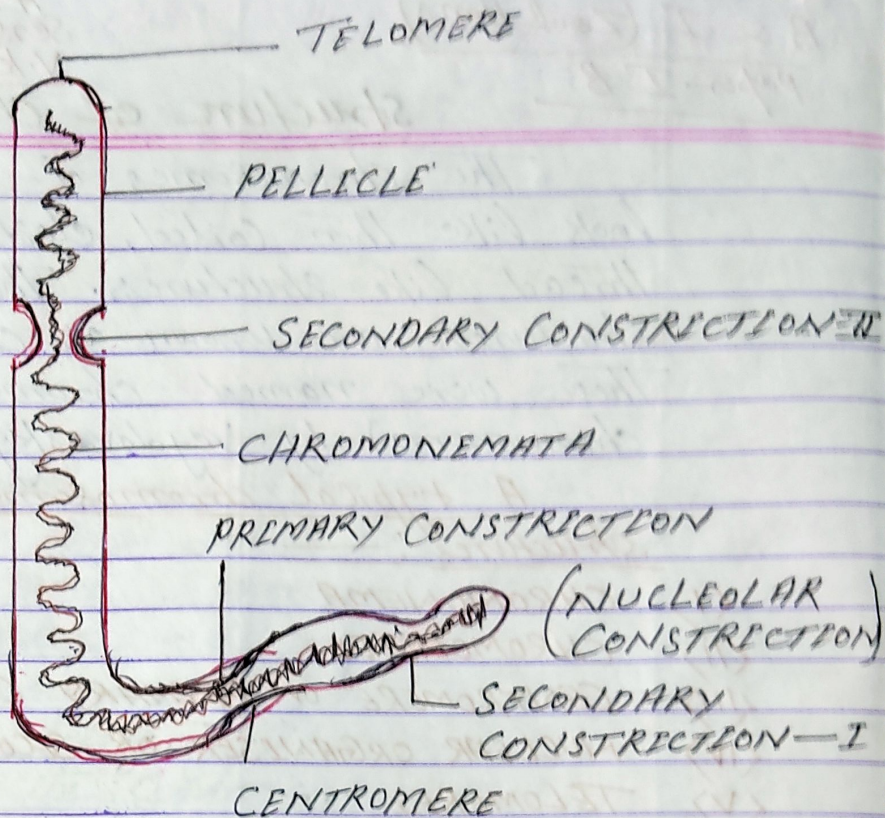 TELOMERE
PELLICLE
SECONDARY CONSTRICTION-II
CHROMONEMATA
PRIMARY CONSTRICTION
(NUCLEOLAR
CONSTRICTION)
SECONDARY
CONSTRICTION-I
CENTROMERE